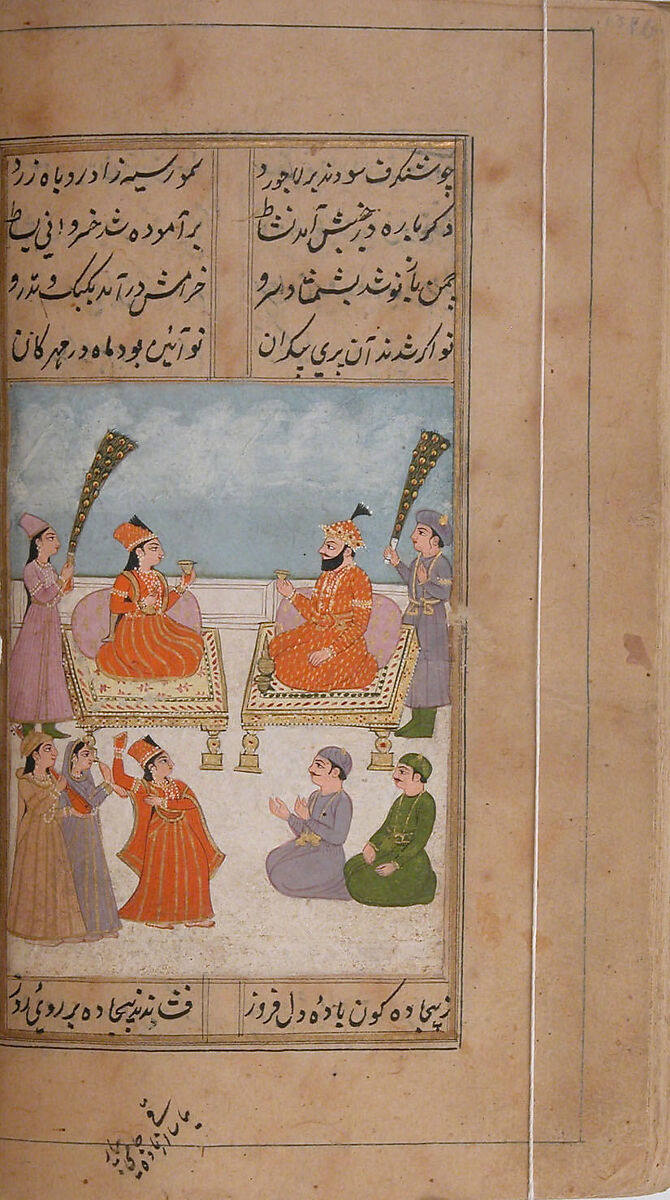 چو شنگرف سودند بر لاجورد سمور سیه زاد روباه زرد
دکر باره در جنبش آمد نشاط بر آموده شد خسروانی بساط
چمن باز نو شد بشمشاد و سرو خرامش در آمد بکبک و تذرو
نواکر شدند آن پری پیکران نو آئین بود ماه در مهرکان
ز بیجاده کون بادۀ دل فروز فشاندند بیجاده بر روی روز